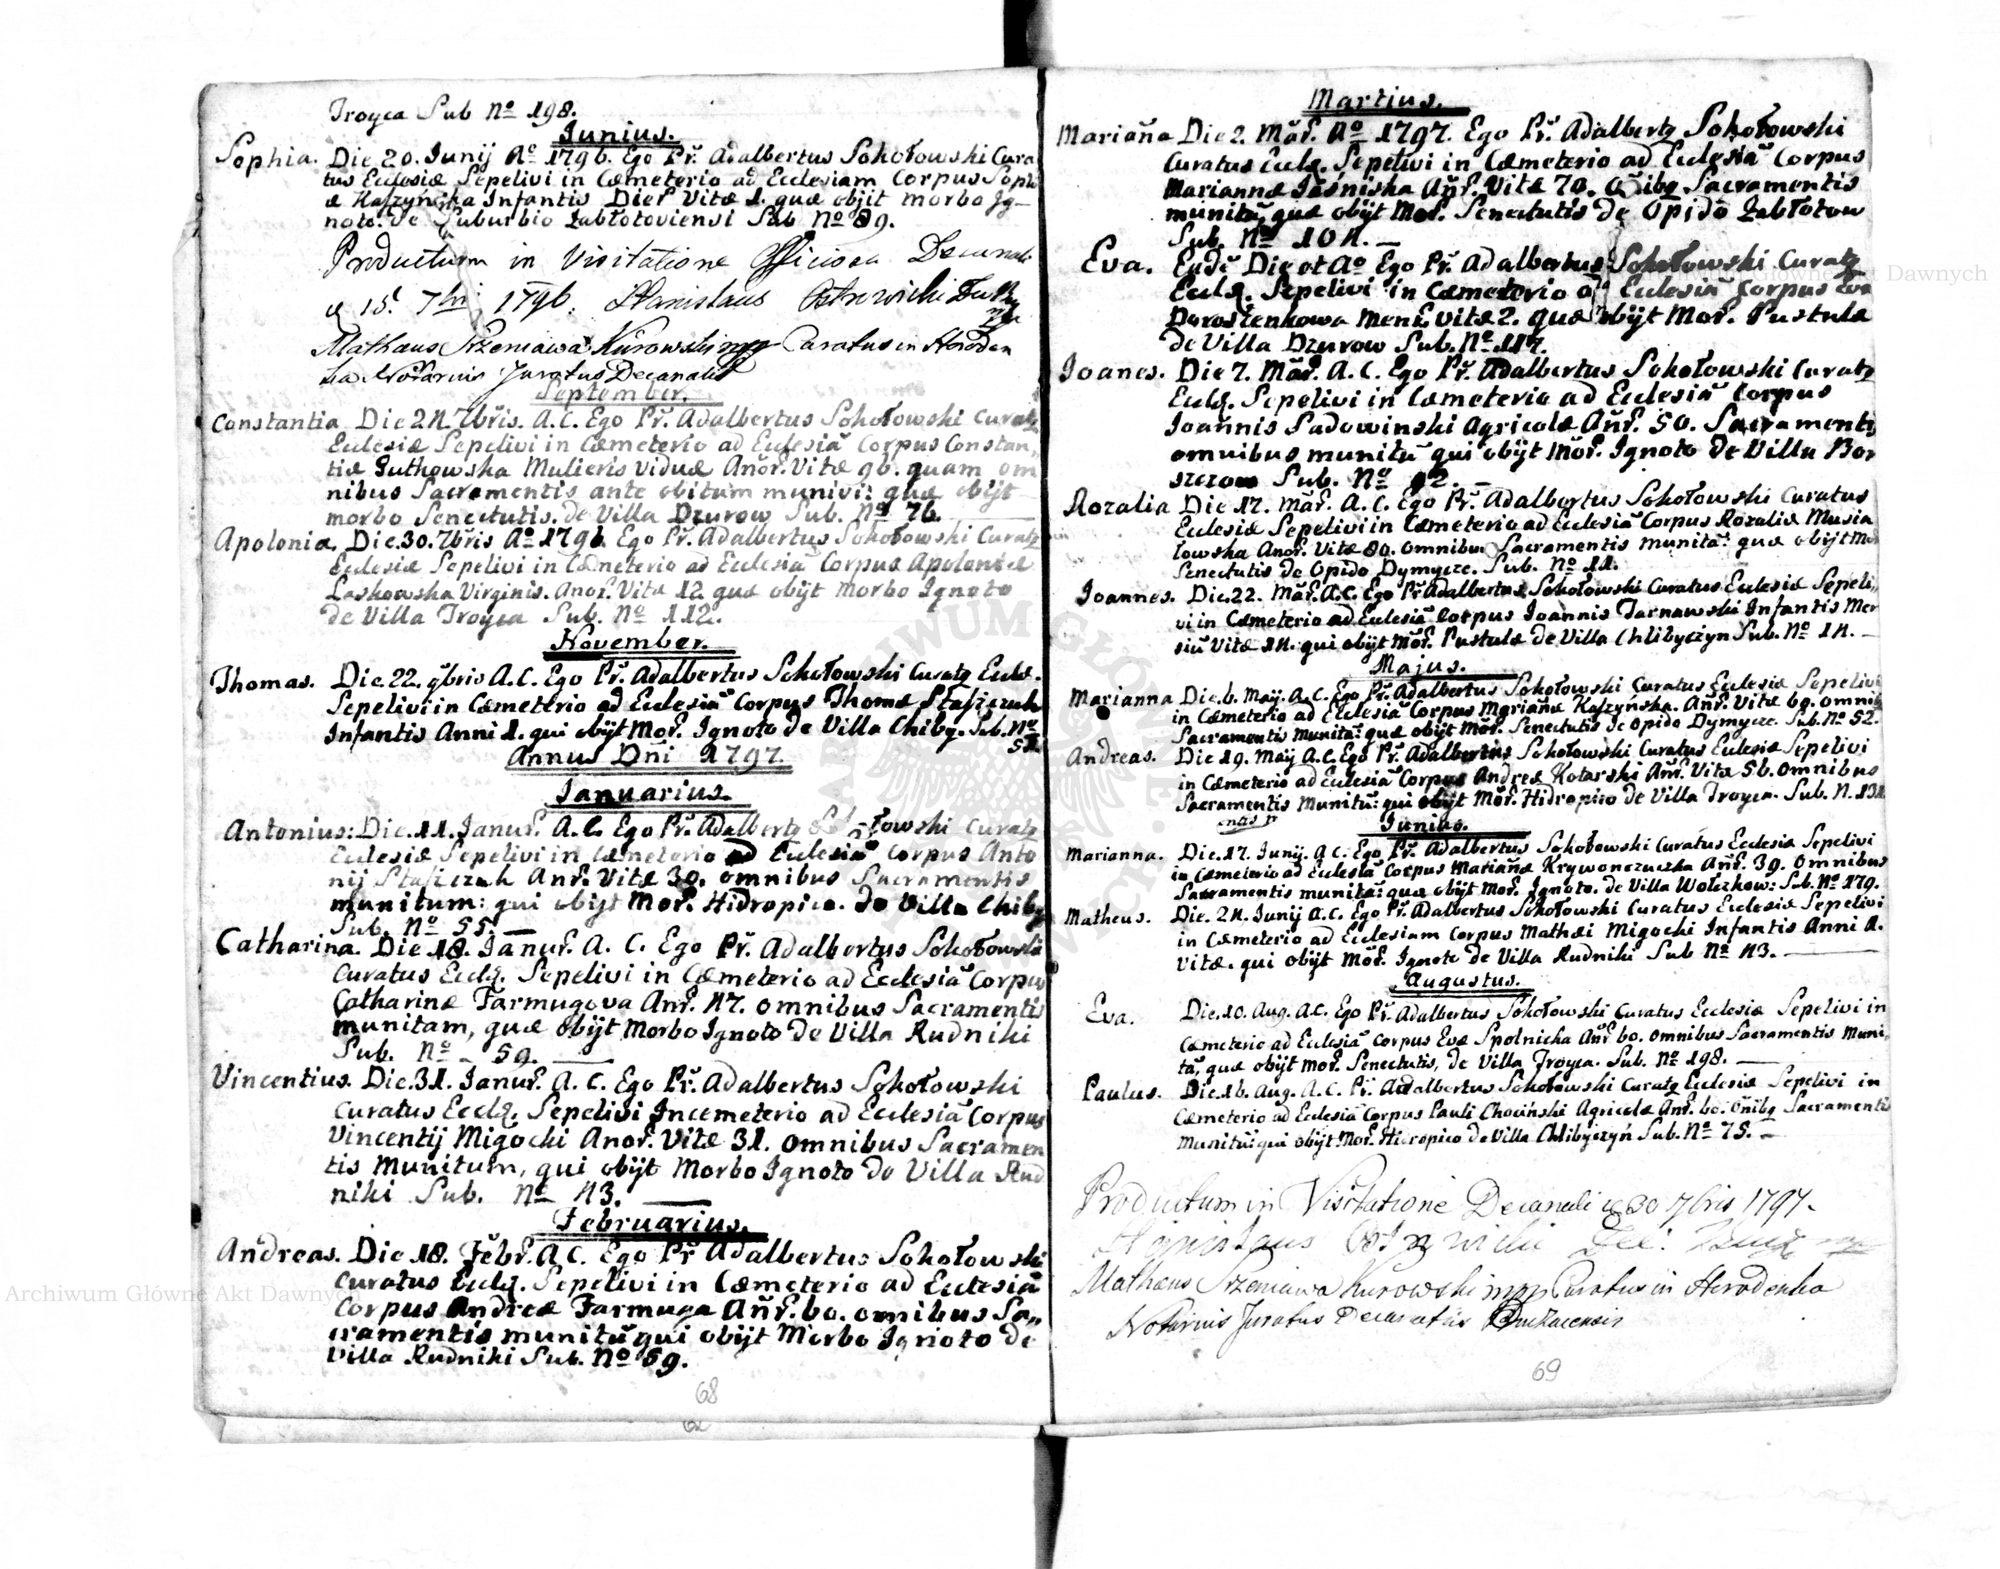 Troyca Sub No 198.
Junius.
Sophia. Die 20. Junij Ao 1796. Ego Pr. Adalbertus Sokołowski Cura
tus Ecclesiæ Sepelivi in Cæmeterio ad Ecclesiam Corpus Soph
æ Kaszyńska Infantis Dier Vitæ 1. quæ obijt morbo Ig-
noto. de Suburbio Zabłotoviensi Sub No 89.
Productum in Visitatione Officiosa Decanali
d 15. 7bri 1796. Stanislaus
Mathaus Srzeniawa Kurowski mpp Curatus in Horoden
ka Notarius Juratus Decanalis
September.
Constantia Die 24. 7bris. A.C. Ego Pr. Adalbertus Sokołowski Curatq
Ecclesiæ Sepelivi in Cæmeterio ad Ecclesiã Corpus Constan„
tiæ Gutkowska Mulieris Viduæ Anor. Vitæ 96. quam om
nibus Sacramentis ante obitum munivi: quæ obijt
morbo Senectutis. de Villa Dzurow Sub. No 76.
Apolonia. Die 30. 7bris Ao 1796. Ego Pr. Adalbertus Sokołowski Curatq
Ecclesiæ Sepelivi in Cæmeterio ad Ecclesiã Corpus Apoloniæ
Laskowska Virginis. Anor. Vitæ 12 quæ obijt Morbo Ignoto
de Villa Troyca Sub. No 112.
November.
Thomas. Die 22. 9bris A.C. Ego Pr. Adalbertus Sokołowski Curatq Eccle.
Sepelivi in Cæmeterio ad Ecclesiã Corpus Thomæ Stasiczuk
Infantis Anni 1. qui obijt Mor. Ignoto de Villa Chliby. Sub. No
52
Annus Dñi 1797.
Januarius.
Antonius: Die 11. Januar. A.C. Ego Pr. Adalbertq Sokołowski Curatq
Ecclesiæ Sepelivi in Cæmeterio ad Ecclesiã Corpus Anto
nij Stasiczuk Anr. Vitæ 30. omnibus Sacramentis
munitum: qui obijt Mor. Hidropico. de Villa Chliby
Sub. No 55. —
Catharina. Die 18. Januar. A. C. Ego Pr. Adalbertus Sokołowski
Curatus Eccle. Sepelivi in Cæmeterio ad Ecclesiã Corpus
Catharinæ Farmugova Anr. 47. omnibus Sacramentis
munitam, quæ obijt Morbo Ignoto de Villa Rudniki
Sub. No - 59. —
Vincentius. Die 31. Januar. A. C. Ego Pr. Adalbertus Sokołowski
Curatus Eccle. Sepelivi Incemeterio ad Ecclesiã Corpus
Vincentij Migocki Anor. Vitæ 31. omnibus Sacramen
tis Munitum, qui obijt Morbo Ignoto de Villa Rud
niki Sub. No 43. —
Februarius.
Andreas. Die 18. Febr. A C. Ego Pr Adalbertus Sokołowski
Curatus Eccle. Sepelivi in Cæmeterio ad Ecclesiã
Corpus Andreæ Farmuga Anr. 60. omnibus Sa„
cramentis munitũ qui obijt Morbo Ignoto de
Villa Rudniki Sub. No 59.
68
Martius.
Mariaña Die 2. Mar. Ao 1797. Ego Pr. Adalbertq Sokołowski
Curatus Eccle. Sepelivi in Cæmeterio ad Ecclesiã Corpus
Mariannæ Jaśniska Anr. Vitæ 70. oñibq Sacramentis
munitã, quæ obijt Mor. Senectutis de Opido Zabłotow
Sub. No 104. —
Eva. Eadē Die et Ao Ego Pr. Adalbertus Sokołowski Curatq
Eccle. Sepelivi in Cæmeterio ad Ecclesiã Corpus Evæ
Doroszenkowa Mens. vitæ 2. quæ obijt Mor. Pustulæ
de Villa Dzurow Sub. No 117.
Joanes. Die 7. Mar. A. C. Ego Pr. Adalbertus Sokołowski Curatq
Eccle. Sepelivi in Cæmeterio ad Ecclesiã Corpus
Joañnis Sadowinski Agricolæ Anr. 50. Sacramentis
omnibus munitũ qui obijt Mor. Ignoto de Villa Bor
szczow Sub. No 12. —
Rozalia Die 17. Mar. A. C. Ego Pr. Adalbertus Sokołowski Curatus
Ecclesiæ Sepelivi in Cæmeterio ad Ecclesiã Corpus Rozaliæ Musia
łowska Anor. Vitæ 80. omnibus Sacramentis munitã: quæ obijt Mor
Senectutis de Opido Dymycze. Sub. No 11.
Joannes. Die 22. Mar. A.C. Ego Pr Adalbertus Sokołowski Curatus Ecclesiæ Sepeli„
vi in Cæmeterio ad Ecclesiã Corpus Joannis Tarnawski Infantis Men
siũ Vitæ 14. qui obijt Mor. Pustulæ de Villa Chlibyczyn Sub. No 14. —
Majus.
Marianna Die 6. Maij. A.C. Ego Pr. Adalbertus Sokołowski Curatus Ecclesiæ Sepelivi
in Cæmeterio ad Ecclesiã Corpus Mariañæ Kaszyńska. Anr. Vitæ 60. omnibq
Sacramentis munitã: quæ obijt Mor. Senectutis de Opido Dymycze. Sub. No 52.
Andreas. Die 19. Maij A.C. Ego Pr. Adalbertus Sokołowski Curatus Ecclesiæ Sepelivi
in Cæmeterio ad Ecclesiã Corpus Andreæ Kotarski Anr. Vitæ 56. omnibus
Sacramentis Munitũ: qui obijt Mor. Hidropico de Villa Troyca. Sub. N. 131
Junius.
Marianna. Die 17. Junij. A C. Ego Pr. Adalbertus Sokołowski Curatus Ecclesiæ Sepelivi
in Cæmeterio ad Ecclesiã Corpus Mariañæ Krywonczuczka Anr. 39. omnibus
Sacramentis munitã: quæ obijt Mor. Ignoto. de Villa Wołczkow: Sub. No 179.
Matheus. Die. 24. Junij A.C. Ego Pr. Adalbertus Sokołowski Curatus Ecclesiæ Sepelivi
in Cæmeterio ad Ecclesiam Corpus Mathæi Migocki Infantis Anni 1.
vitæ. qui obijt Mor. Ignoto de Villa Rudniki Sub No 43. —
Augustus.
Eva. Die. 10. Aug. A.C. Ego Pr. Adalbertus Sokołowski Curatus Ecclesiæ Sepelivi in
Cæmeterio ad Ecclesiã Corpus Evæ Spolnicka Anr. 60. omnibus Sacramentis Muni„
tã, quæ obijt Mor. Senectutis, de Villa Troyca. Sub. No 198. —
Paulus. Die. 16. Aug. A. C. Pr. Adalbertus Sokołowski Curatq Ecclesiæ Sepelivi in
Cæmeterio ad Ecclesiã Corpus Pauli Chociński Agricolæ Anr. 60. oñibq Sacramentis
Munitũ: qui obijt Mor. Hidropico de Villa Chlibyczyń Sub. No 75. —
Productum in Visitatione Decanali d 30 7bris 1797.
Mathaus Srzeniawa Kurowski mpp Curatus in Horodenka
Notarius Juratus Decanatus
69
Archiwum Główne Akt Dawnych
Archiwum Główne Akt Dawnych